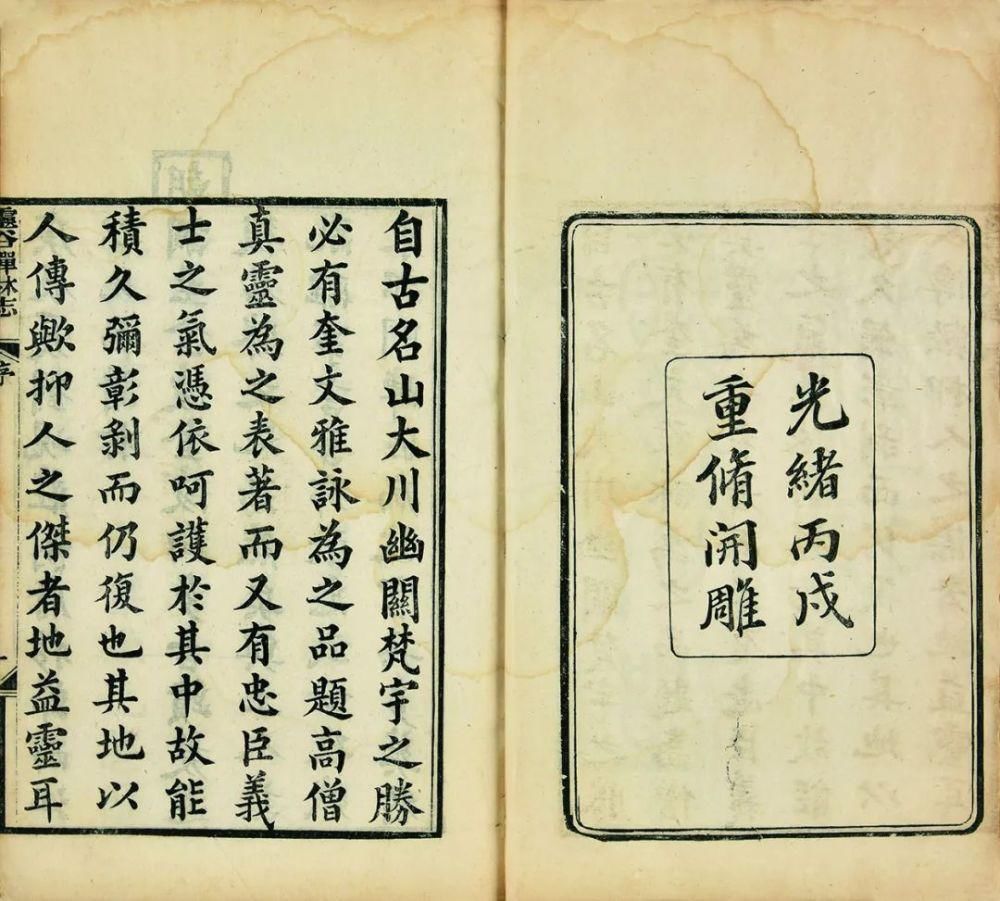 光緒丙戌
重脩開雕
自古名山大川幽關梵宇之勝
必有奎文雅詠為之品題高僧
真靈為之表著而又有忠臣義
士之氣憑依呵護於其中故能
積久彌彰剝而仍復也其地以
人傳歟抑人之傑者地益靈耳
靈谷禪林志
序